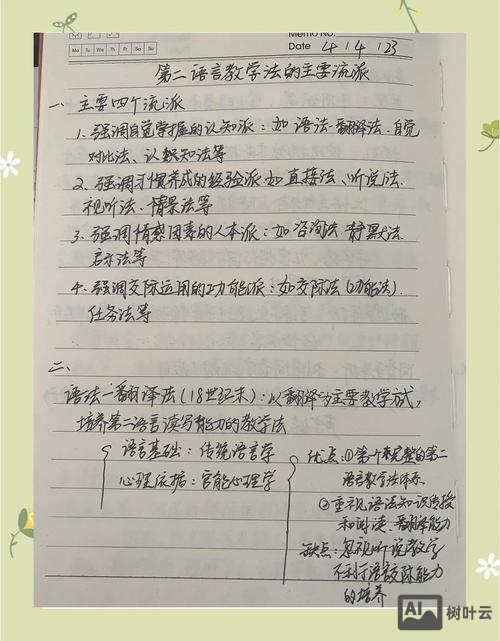 Memo No.
Mo Tu We Th Fr Sa Su
Date 4 / 4 / 23
第二语言教学法的主要流派
一、主要四个流派
1. 强调自觉掌握的认知派：如语法-翻译法、自觉
对比法、认知法等
2. 强调习惯养成的经验派：如直接法、听说法、
视听法、情景法等
3. 强调情感因素的人本派：如咨询法、静默法、
启示法等
4. 强调交际运用的功能派：如交际法(功能法)、
任务法等
二、
语法-翻译法(18世纪末)：以翻译为主要教学方式，
培养第二语言读写能力的教学法
语言基础：传统语言学
心理依据：官能心理学
优点：①第一个完整的第二
语言教学法体系
②重视语法知识传授
和阅读、翻译能力
缺点：忽视听说教学
不利于语言交际能力
的培养
AI
树叶云